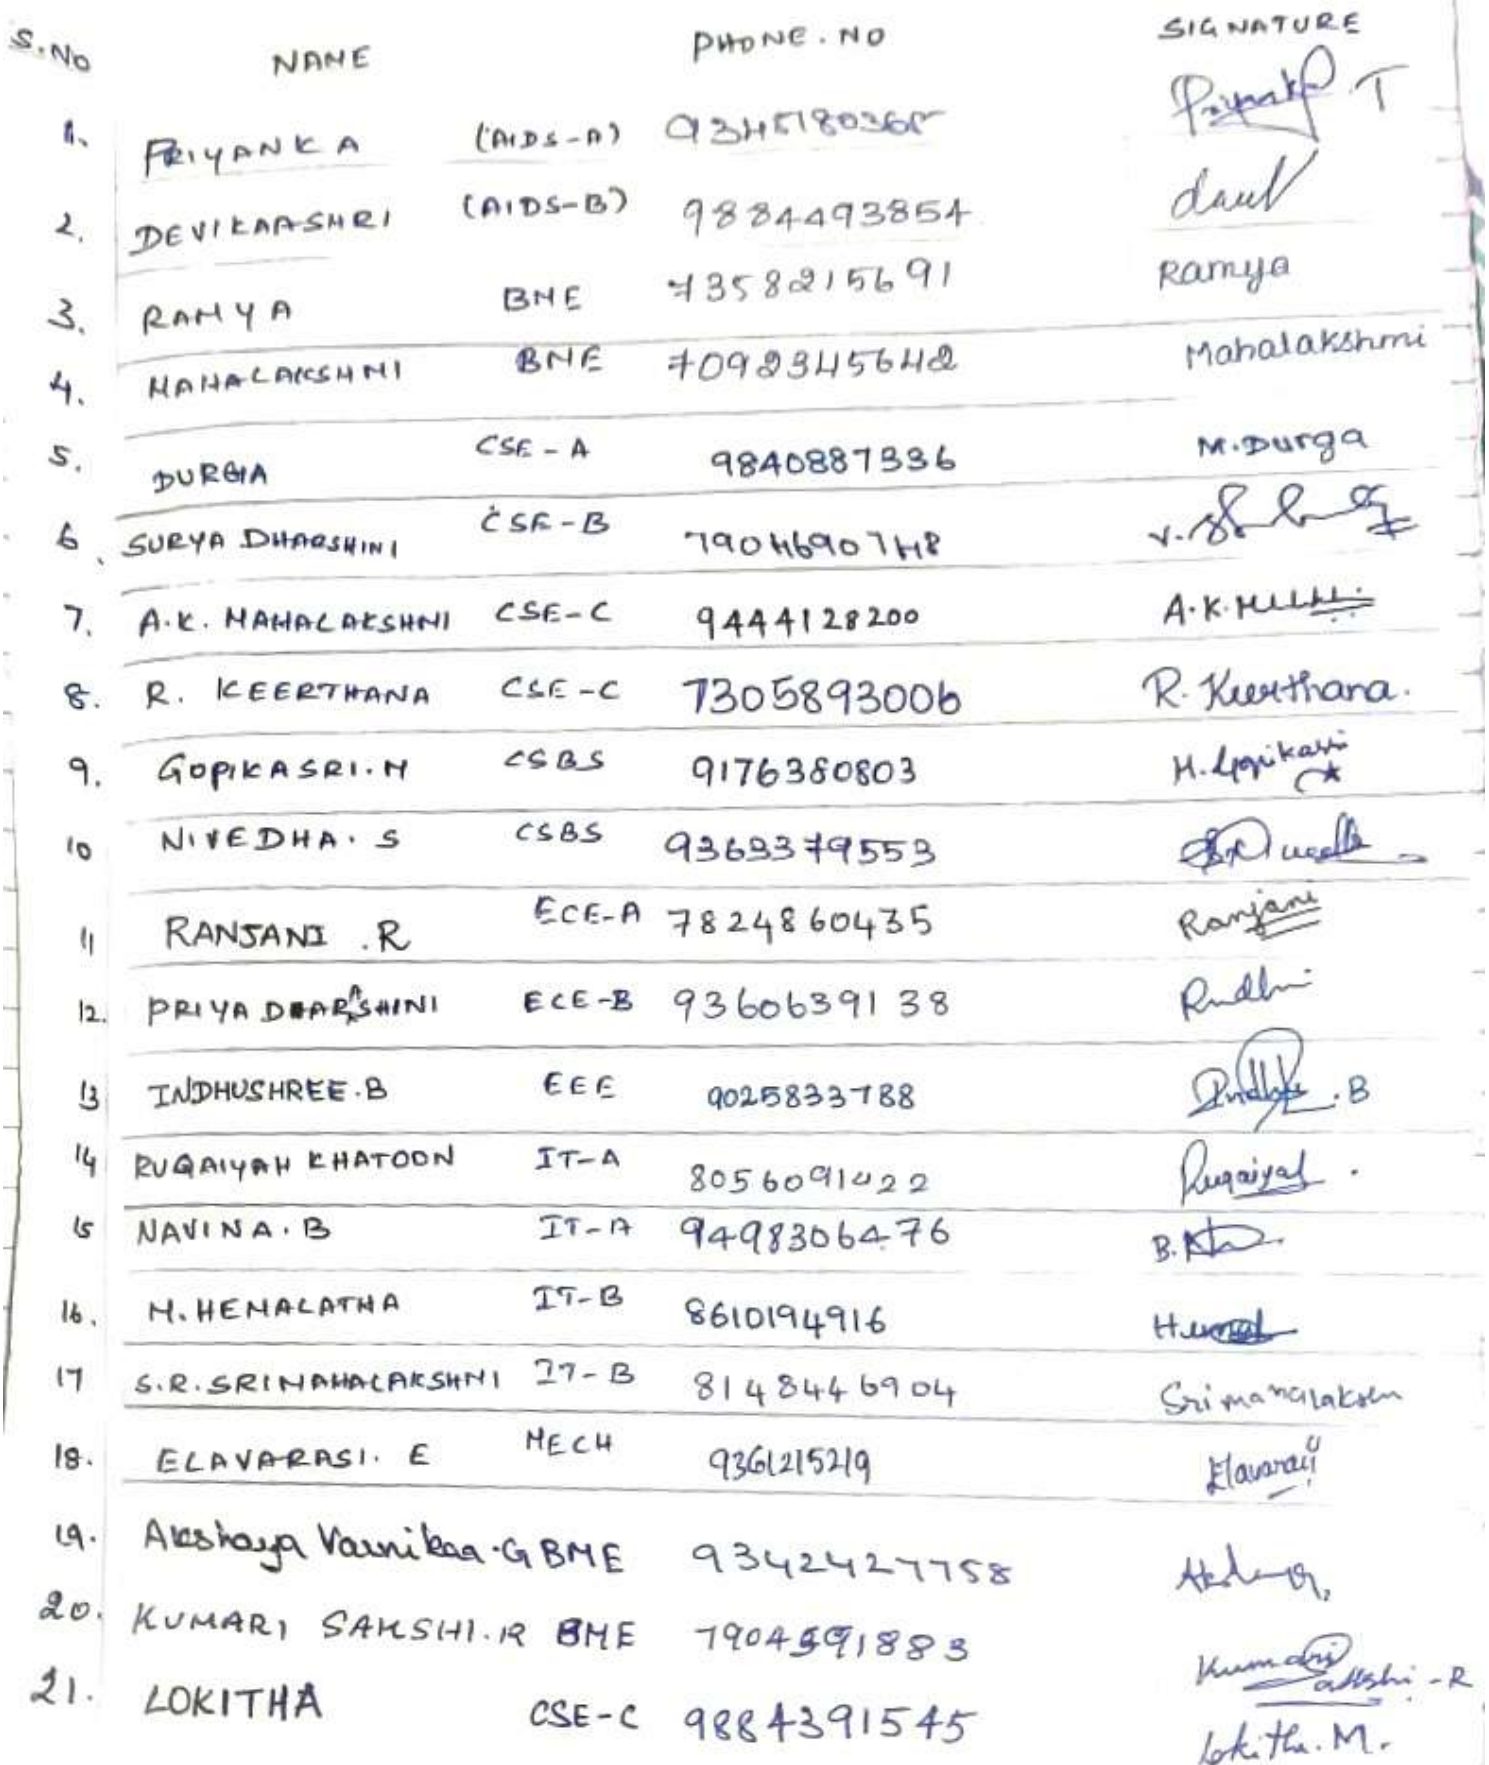 S.No NAME PHONE.NO SIGNATURE
1. PRIYANKA (AIDS-A) 9345180365 Priyanka T
2. DEVIKAASHRI (AIDS-B) 9884493854
3. RAMYA BME 7358215691 Ramya
4. MAHALAKSHMI BME 7092345642 Mahalakshmi
5. DURGA CSE-A 9840887336 M.Durga
6. SURYA DHARSHINI CSE-B 7904690748
7. A.K. MAHALAKSHMI CSE-C 9444128200 A.K.
8. R. KEERTHANA CSE-C 7305893006 R. Keerthana.
9. GOPIKASRI.M CSBS 9176380803 M. Gopikasri
10 NIVEDHA. S CSBS 9363379553
11 RANJANI .R ECE-A 7824860435 Ranjani
12. PRIYA DHARSHINI ECE-B 9360639138
13 INDHUSHREE.B EEE 9025833788 .B
14 RUQAIYAH KHATOON IT-A 8056091422 Ruqaiyah.
15 NAVINA.B IT-A 9498306476 B.
16. M.HEMALATHA IT-B 8610194916
17 S.R.SRIMAHALAKSHMI IT-B 8148446904
18. ELAVARASI. E MECH 9361215219 Elavarasi
19. Akshaya Varnikaa.G BME 9342427758
20. KUMARI SAKSHI.R BME 7904591883 Kumari Sakshi-R
21. LOKITHA CSE-C 9884391545 Lokitha.M.